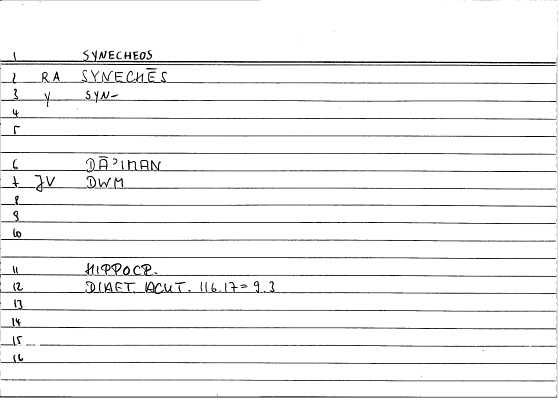 1 SYNECHEOS
2 RA SYNECHĒS
3 Y SYN-
4
5
6 DĀʾIMAN
7 JV DWM
8
9
10
11 HIPPOCR.
12 DIAET. ACUT. 116.17 = 9.3
13
14
15
16